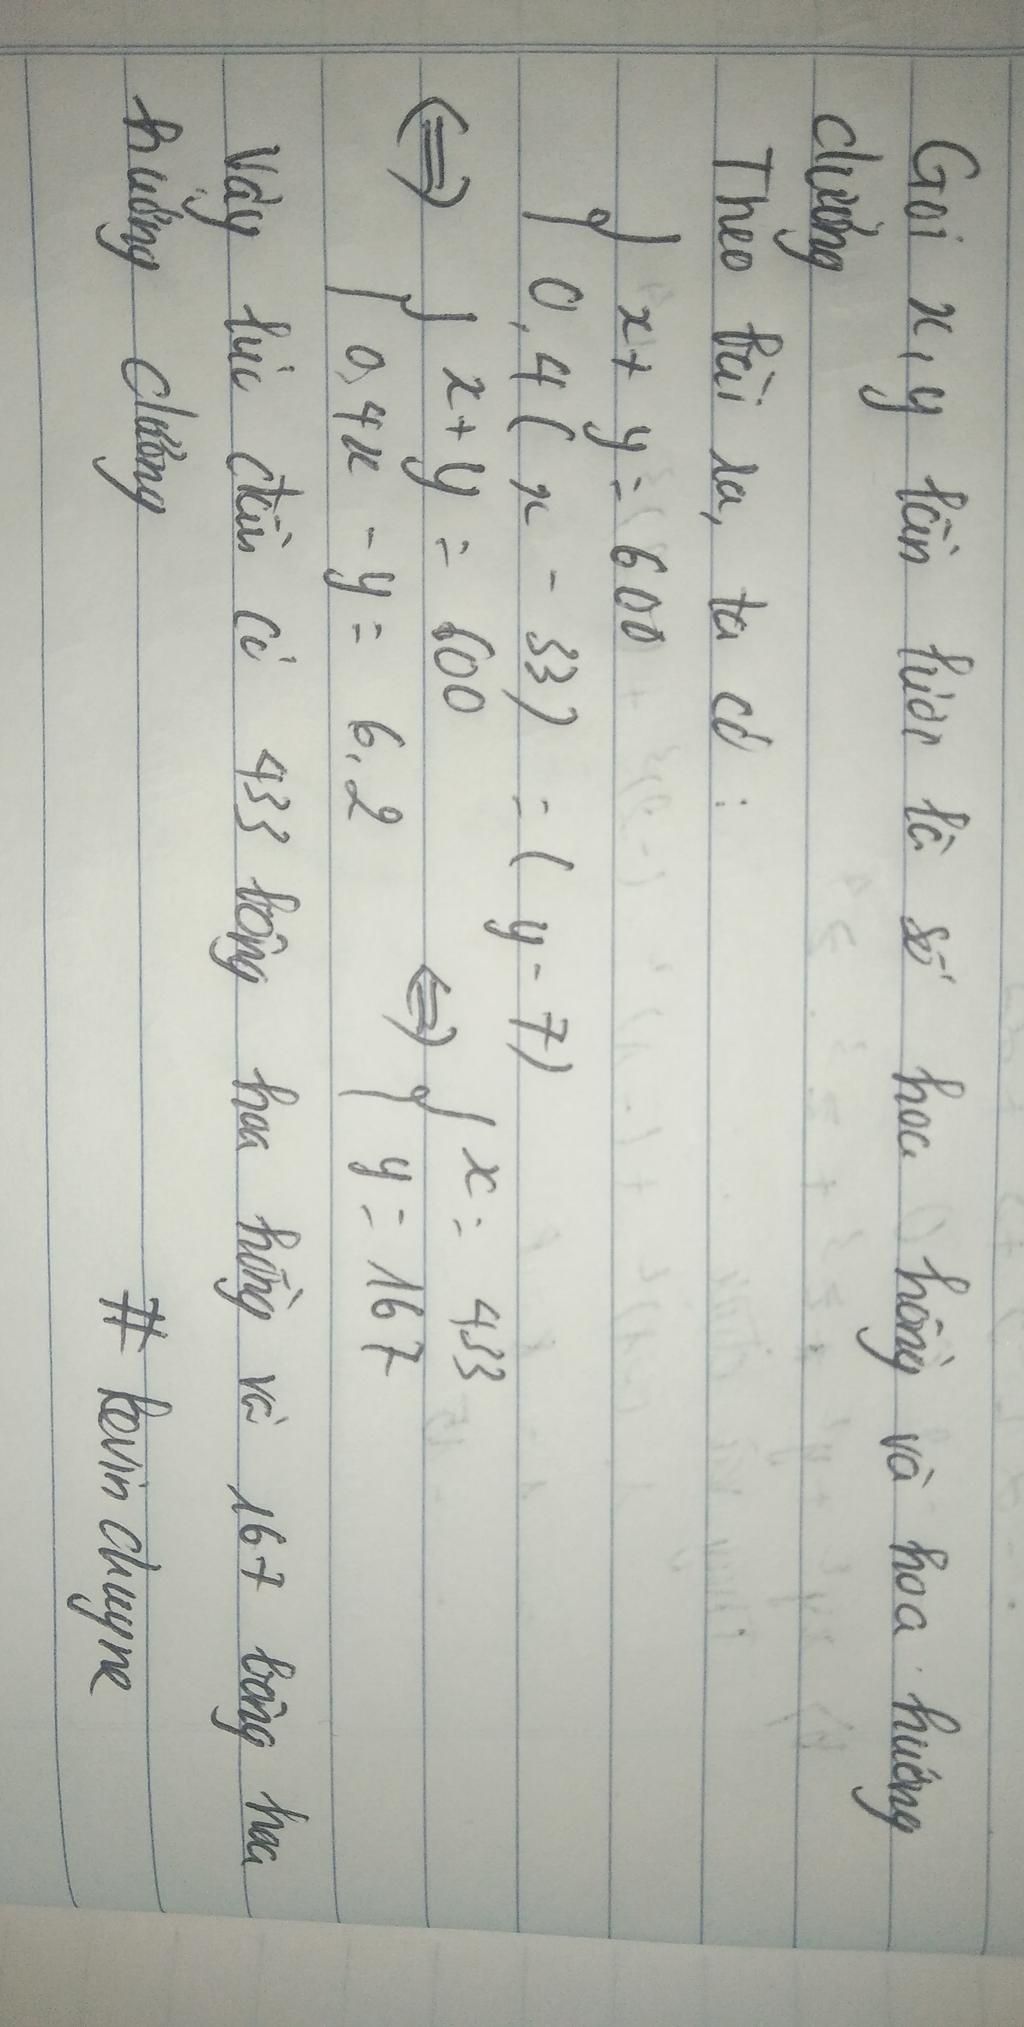 Gọi x, y lần lượt là số hoa hồng và hoa hướng
dương
Theo bài ra, ta có :
{ x + y = 600
0,4 ( x - 33) = ( y - 7)
<=> { x + y = 600
0,4x - y = 6,2
<=> { x = 433
y = 167
Vậy lúc đầu có 433 bông hoa hồng và 167 bông hoa
hướng dương
# kevin chuyne